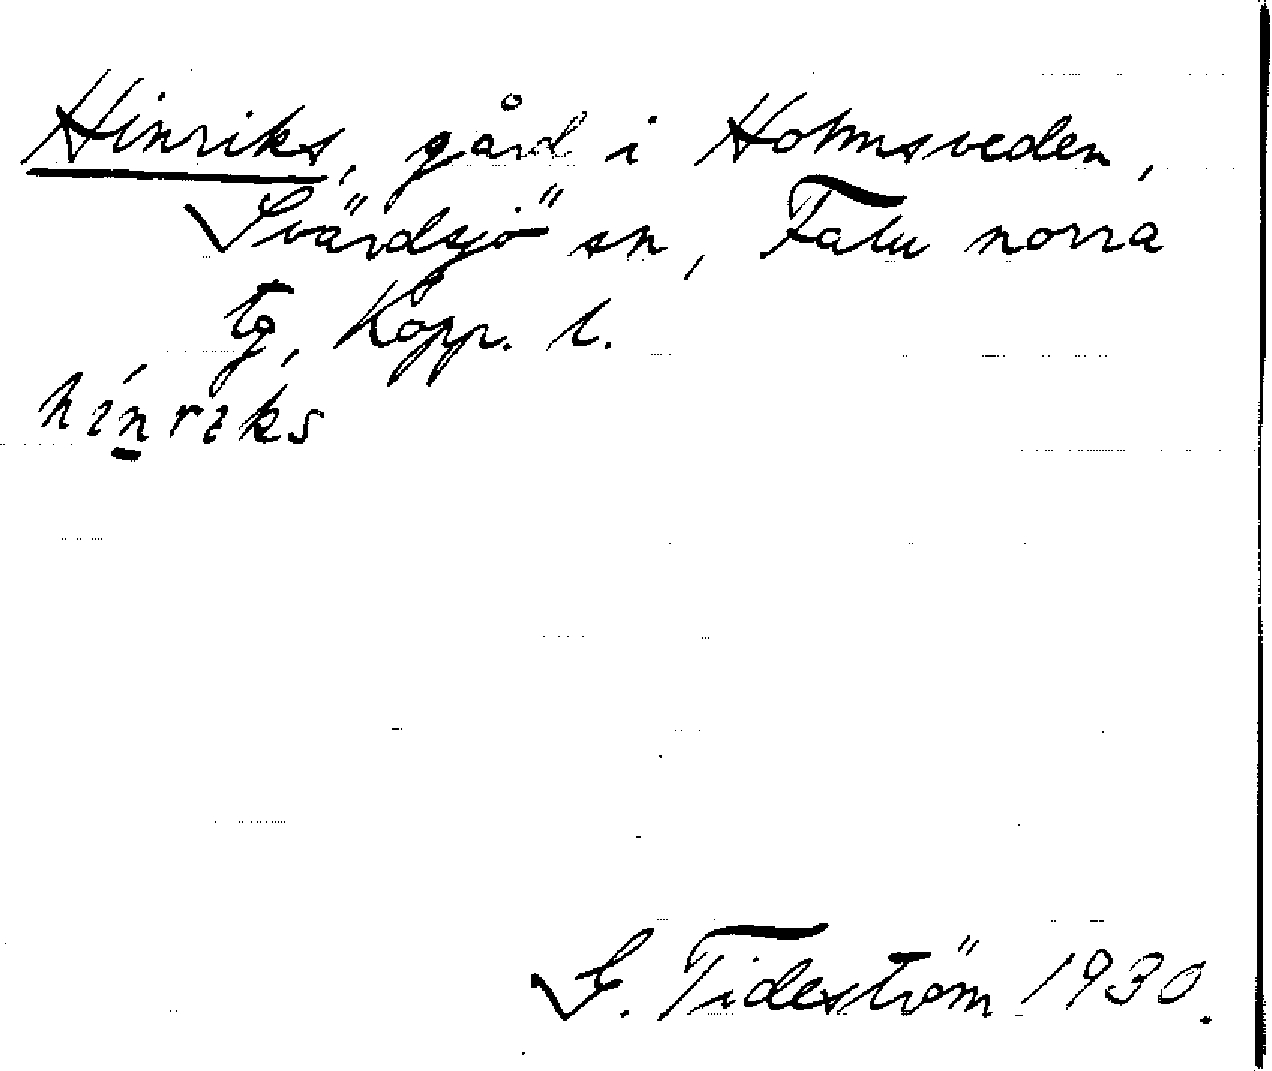 Hinriks, gård i Holmsveden,
Svärdsjö sn, Falu norra
tg, Kopp. l.
hínriks
G. Tideström 1930.